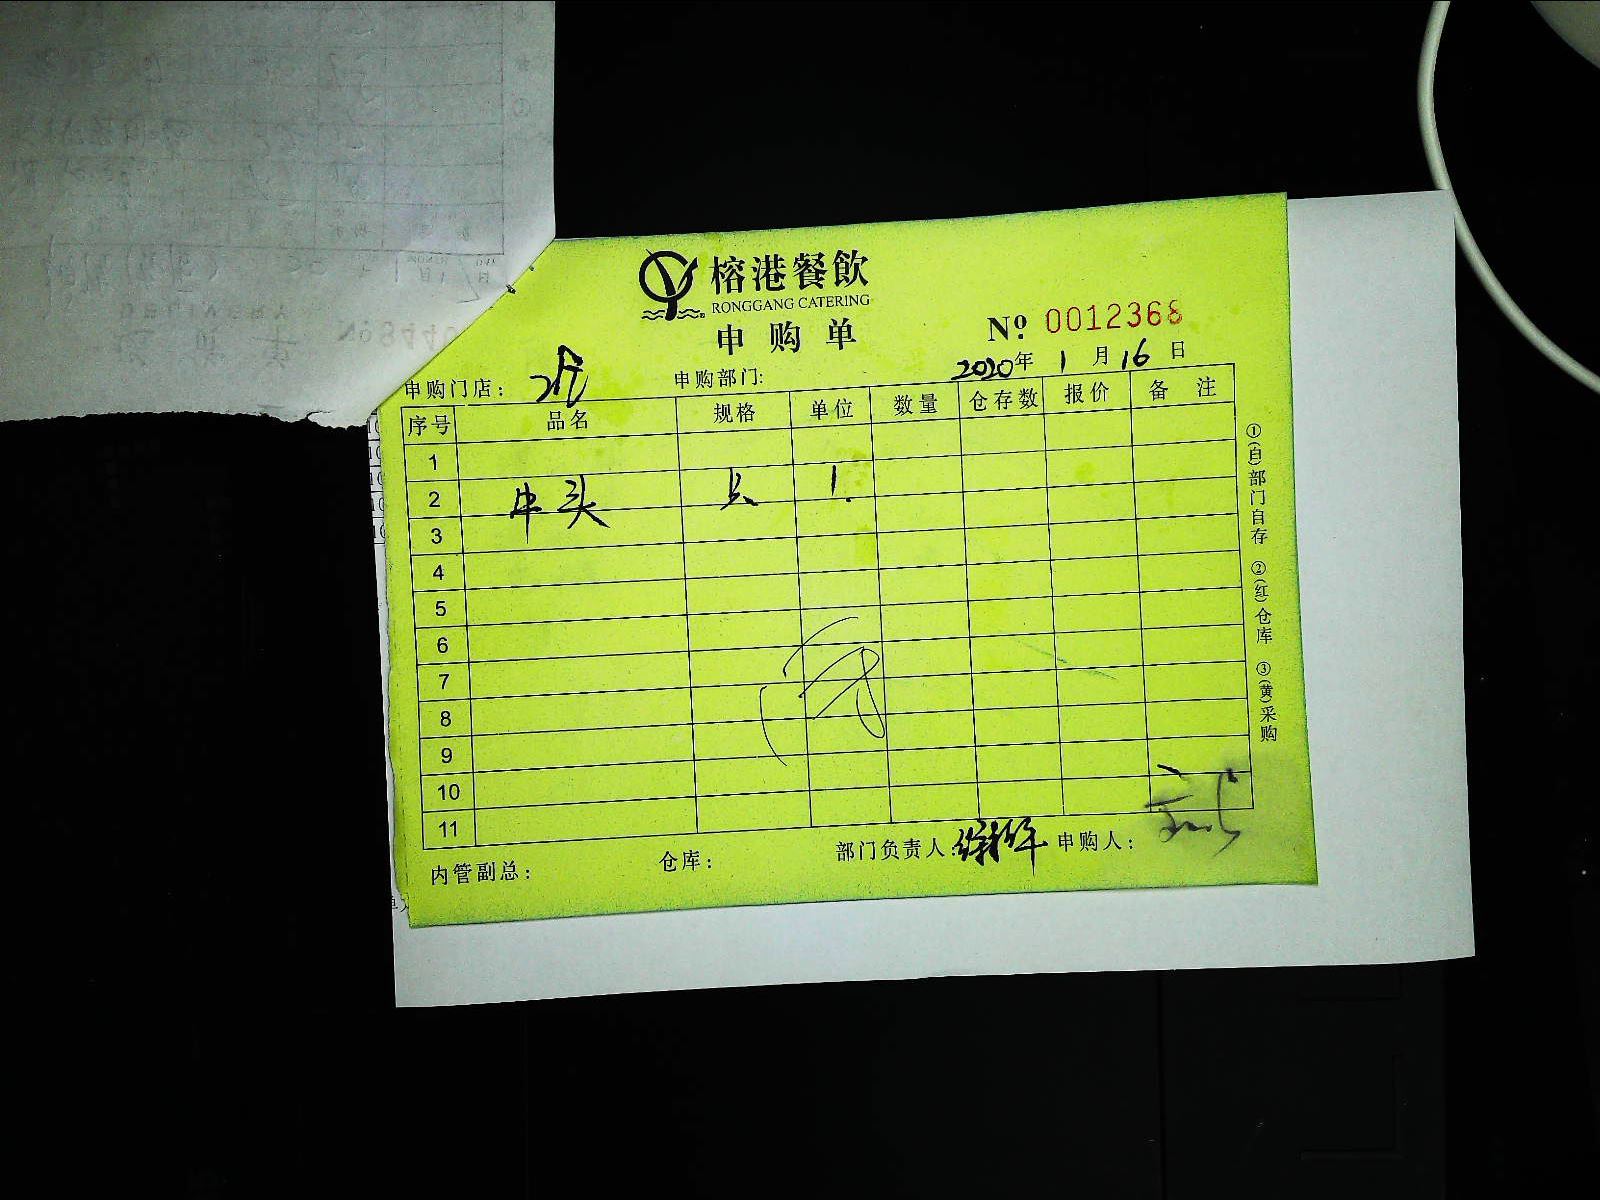 榕港餐飲
RONGGANG CATERING
申购单
Nº 0012368
2020年 1月16日
申购门店: 申购部门:
序号 品名 规格 单位 数量 仓存数 报价 备 注
1
2 牛头 1.
3
4
5
6
7
8
9
10
11
内管副总: 仓库: 部门负责人: 申购人:
①(白)部门自存 ②(红)仓库 ③(黄)采购